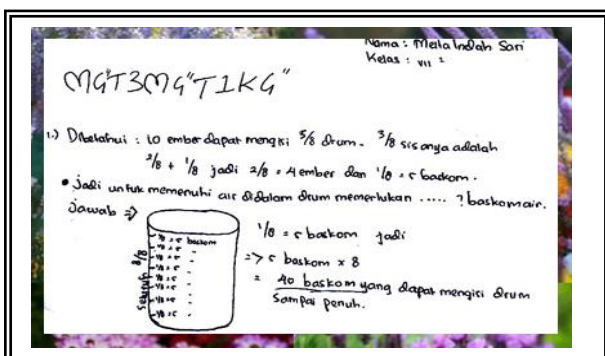 Nama : Melia Indah Sari
Kelas : VII 2
MGT3MG"T1KG"
1.) Diketahui : 10 ember dapat mengisi 5/8 drum. 3/8 sisanya adalah
2/8 + 1/8 jadi 2/8 = 4 ember dan 1/8 = 5 baskom.
• Jadi untuk memenuhi air didalam drum memerlukan ..... ? baskom air.
Jawab =>
1/8 = 5 baskom
1/8 = 5 "
1/8 = 5 "
1/8 = 5 "
1/8 = 5 "
1/8 = 5 "
1/8 = 5 "
1/8 = 5 "
8/8
1/8 = 5 baskom jadi
=> 5 baskom x 8
= 40 baskom yang dapat mengisi drum
sampai penuh.